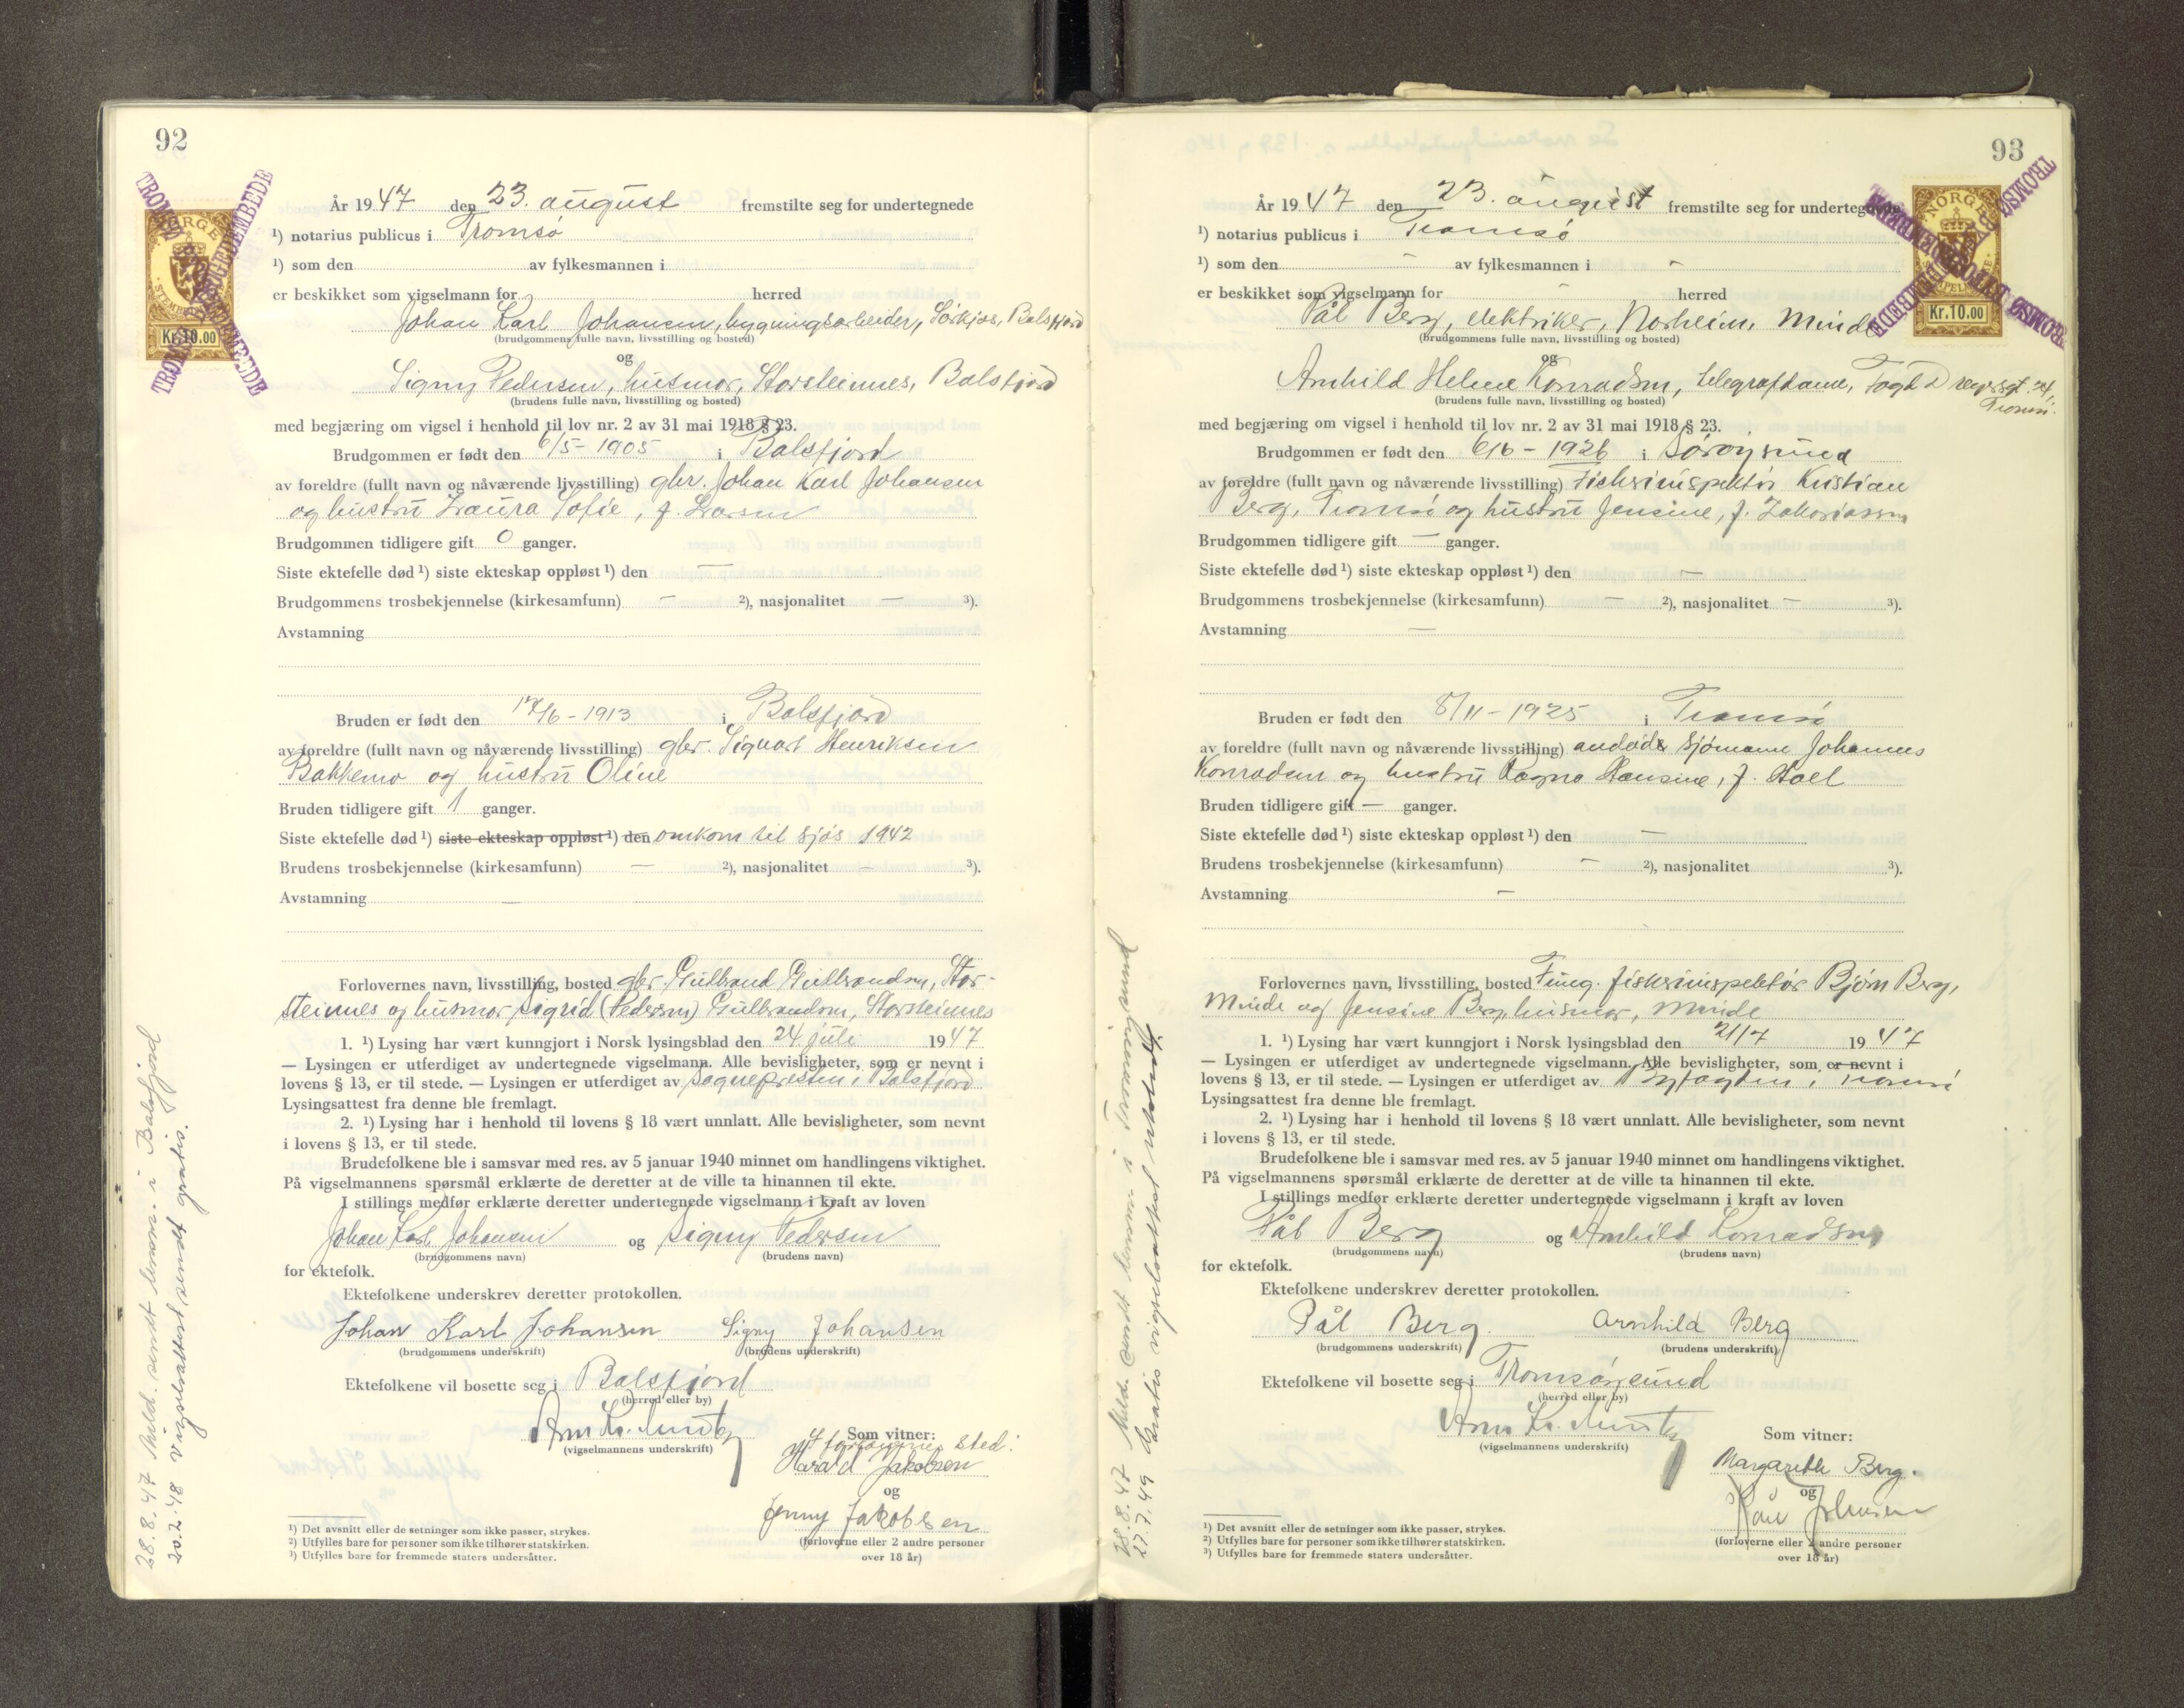 92
TROMSØ BYFOGDEMBEDE
NORGE
STEMPELMERKE
Kr.10.00
År 1947 den 23. august fremstilte seg for undertegnede
¹) notarius publicus i Tromsø
¹) som den av fylkesmannen i
er beskikket som vigselmann for herred
Johan Karl Johansen, bygningsarbeider, Sørkjos, Balsfjord
(brudgommens fulle navn, livsstilling og bosted)
og
Signy Pedersen, husmor, Storsteinnes, Balsfjord
(brudens fulle navn, livsstilling og bosted)
med begjæring om vigsel i henhold til lov nr. 2 av 31 mai 1918 § 23.
Brudgommen er født den 6/5 - 1905 i Balsfjord
av foreldre (fullt navn og nåværende livsstilling) gbr. Johan Karl Johansen
og hustru Laura Sofie, f. Larsen
Brudgommen tidligere gift 0 ganger.
Siste ektefelle død ¹) siste ekteskap oppløst ¹) den —
Brudgommens trosbekjennelse (kirkesamfunn) — ²), nasjonalitet — ³).
Avstamning
Bruden er født den 17/6 - 1913 i Balsfjord
av foreldre (fullt navn og nåværende livsstilling) gbr. Sigvart Henriksen
Bakkemo og hustru Oline
Bruden tidligere gift 1 ganger.
Siste ektefelle død ¹) siste ekteskap oppløst ¹) den omkom til sjøs 1942
Brudens trosbekjennelse (kirkesamfunn) — ²), nasjonalitet — ³).
Avstamning —
Forlovernes navn, livsstilling, bosted gbr. Gulbrand Gulbrandsen, Stor-
steinnes og husmor Sigrid (Pedersen) Gulbrandsen, Storsteinnes
1. ¹) Lysing har vært kunngjort i Norsk lysingsblad den 24. juli 1947
— Lysingen er utferdiget av undertegnede vigselmann. Alle bevisligheter, som er nevnt i
lovens § 13, er til stede. — Lysingen er utferdiget av sognepresten i Balsfjord
Lysingsattest fra denne ble fremlagt.
2. ¹) Lysing har i henhold til lovens § 18 vært unnlatt. Alle bevisligheter, som nevnt
i lovens § 13, er til stede.
Brudefolkene ble i samsvar med res. av 5 januar 1940 minnet om handlingens viktighet.
På vigselmannens spørsmål erklærte de deretter at de ville ta hinannen til ekte.
I stillings medfør erklærte deretter undertegnede vigselmann i kraft av loven
Johan Karl Johansen og Signy Pedersen
(brudgommens navn) (brudens navn)
for ektefolk.
Ektefolkene underskrev deretter protokollen.
Johan Karl Johansen Signy Johansen
(brudgommens underskrift) (brudens underskrift)
Ektefolkene vil bosette seg i Balsfjord
(herred eller by)
(vigselmannens underskrift)
Som vitner:
Harald Jakobsen
og
Jenny Jakobsen
(forloverne eller 2 andre personer
over 18 år)
¹) Det avsnitt eller de setninger som ikke passer, strykes.
²) Utfylles bare for personer som ikke tilhører statskirken.
³) Utfylles bare for fremmede staters undersåtter.
28.8.47 Meld. sendt lensm. i Balsfjord
20.2.48 Vigselsattest sendt gratis.
93
TROMSØ BYFOGDEMBEDE
NORGE
STEMPELMERKE
Kr.10.00
År 1947 den 23. august fremstilte seg for undertegnede
¹) notarius publicus i Tromsø
¹) som den - av fylkesmannen i -
er beskikket som vigselmann for - herred
Pål Berg, elektriker, Norheim, Minde
(brudgommens fulle navn, livsstilling og bosted)
og
Arnhild Helene Konradsen, telegrafdame, Fogd Dreyersgt. 24, Tromsø.
(brudens fulle navn, livsstilling og bosted)
med begjæring om vigsel i henhold til lov nr. 2 av 31 mai 1918 § 23.
Brudgommen er født den 6/6 - 1926 i Sørøysund
av foreldre (fullt navn og nåværende livsstilling) Fiskeriinspektør Kristian
Berg, Tromsø og hustru Jensine, f. Zakariassen
Brudgommen tidligere gift — ganger.
Siste ektefelle død ¹) siste ekteskap oppløst ¹) den —
Brudgommens trosbekjennelse (kirkesamfunn) — ²), nasjonalitet — ³).
Avstamning —
Bruden er født den 8/11 - 1925 i Tromsø
av foreldre (fullt navn og nåværende livsstilling) avdøde sjømann Johannes
Konradsen og hustru Ragna Hansine, f. Hoel
Bruden tidligere gift — ganger.
Siste ektefelle død ¹) siste ekteskap oppløst ¹) den —
Brudens trosbekjennelse (kirkesamfunn) — ²), nasjonalitet ³).
Avstamning —
Forlovernes navn, livsstilling, bosted Fung. fiskeriinspektør Bjørn Berg,
Minde og Jensine Berg, husmor, Minde
1. ¹) Lysing har vært kunngjort i Norsk lysingsblad den 21/7 1947
— Lysingen er utferdiget av undertegnede vigselmann. Alle bevisligheter, som er nevnt i
lovens § 13, er til stede. — Lysingen er utferdiget av Byfogden i Tromsø
Lysingsattest fra denne ble fremlagt.
2. ¹) Lysing har i henhold til lovens § 18 vært unnlatt. Alle bevisligheter, som nevnt
i lovens § 13, er til stede.
Brudefolkene ble i samsvar med res. av 5 januar 1940 minnet om handlingens viktighet.
På vigselmannens spørsmål erklærte de deretter at de ville ta hinannen til ekte.
I stillings medfør erklærte deretter undertegnede vigselmann i kraft av loven
Pål Berg og Arnhild Konradsen
(brudgommens navn) (brudens navn)
for ektefolk.
Ektefolkene underskrev deretter protokollen.
Pål Berg. Arnhild Berg
(brudgommens underskrift) (brudens underskrift)
Ektefolkene vil bosette seg i Tromsøysund
(herred eller by)
(vigselmannens underskrift)
Som vitner:
Margarethe Berg.
og
(forloverne eller 2 andre personer
over 18 år)
¹) Det avsnitt eller de setninger som ikke passer, strykes.
²) Utfylles bare for personer som ikke tilhører statskirken.
³) Utfylles bare for fremmede staters undersåtter.
28.8.47 Meld. sendt lensm. i Tromsøysund
27.7.49 Gratis vigselsattest utstedt